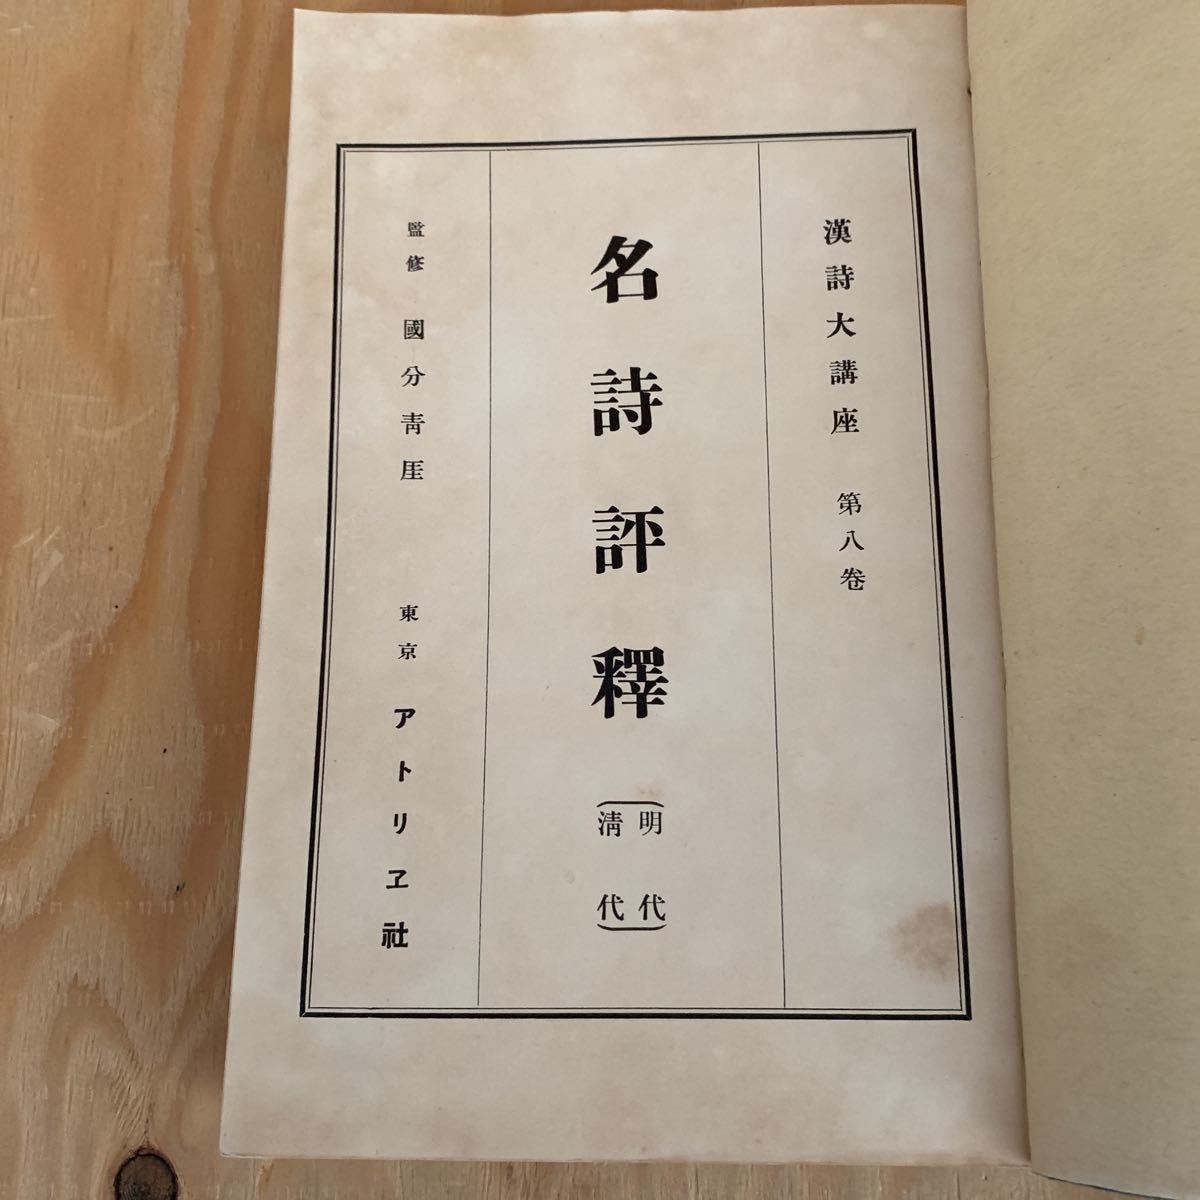 漢詩大講座 第八卷
名詩評釋
(明代)
(清代)
監修 國分青厓 東京 アトリヱ社